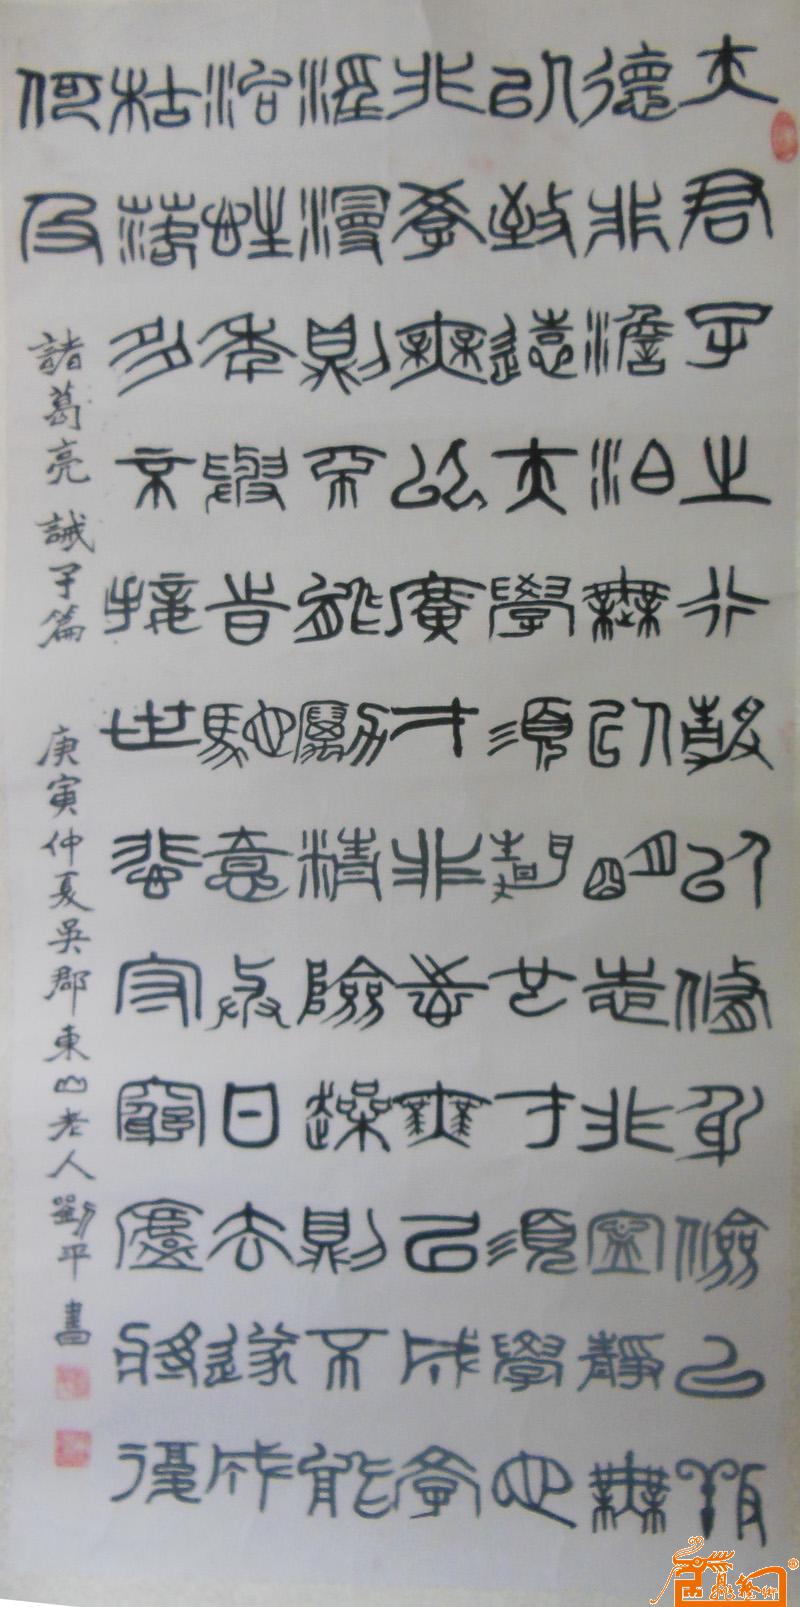 夫君子之行靜以修身儉以養
德非澹泊無以明志非寧靜無
以致遠夫學須靜也才須學也
非學無以廣才非志無以成學
淫漫則不能勵精險躁則不能
冶性年與時馳意與日去遂成
枯落多不接世悲守窮廬將復
何及
諸葛亮 誡子篇 庚寅仲夏吳郡東山老人劉平書